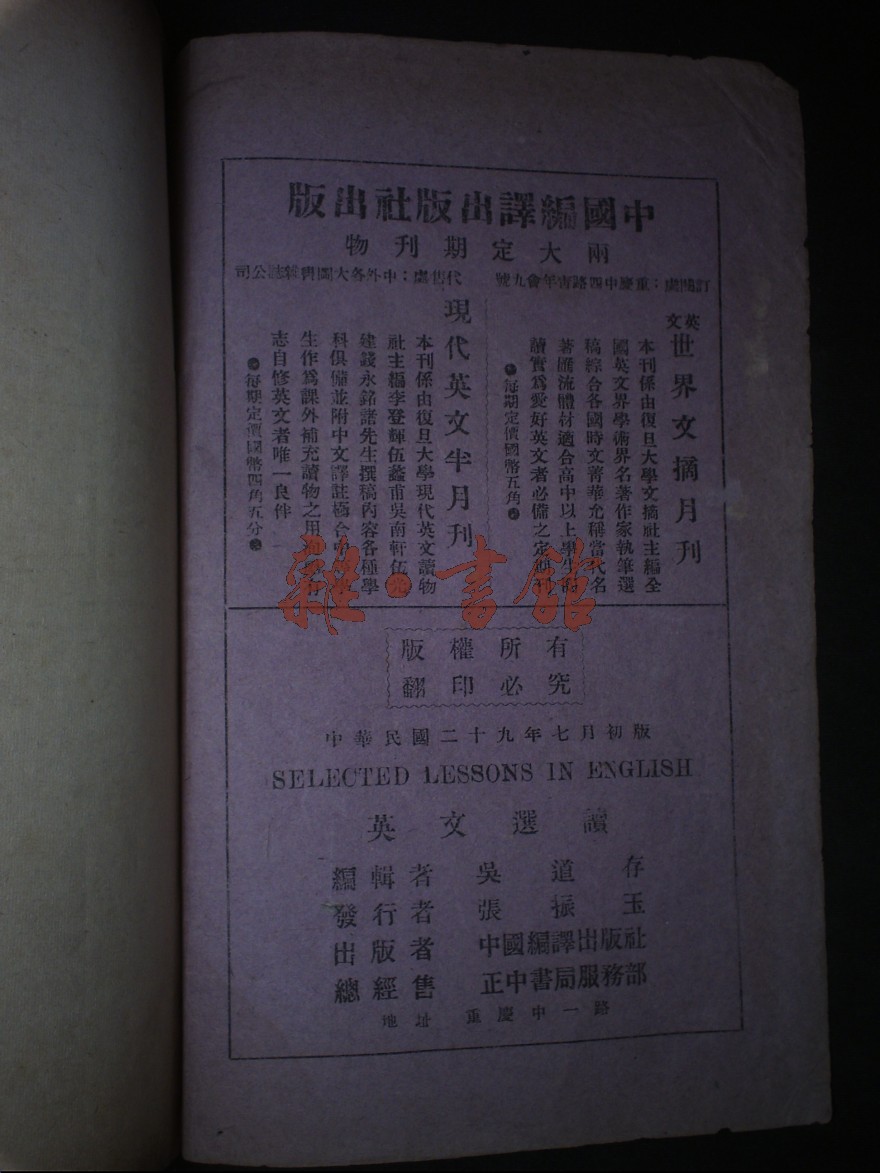 中國編譯出版社出版
兩大定期刊物
訂閱處：重慶中四路青年會九號
代售處：中外各大圖書雜誌公司
英文
世界文摘月刊
本刊係由復旦大學文摘社主編全
國英文界學術界名著作家執筆選
稿綜合各國時文菁華允稱當代名
著匯流體材適合高中以上學生
讀實爲愛好英文者必備之定期刊
每期定價國幣五角
現代英文半月刊
本刊係由復旦大學現代英文讀物
社主編李登輝伍蠡甫吳南軒伍光
建錢永銘諸先生撰稿內容各種學
科俱備並附中文譯註極合中
生作爲課外補充讀物之用
志自修英文者唯一良伴
每期定價國幣四角五分
雜·書館
版權所有
翻印必究
中華民國二十九年七月初版
SELECTED LESSONS IN ENGLISH
英文選讀
編輯者 吳道存
發行者 張振玉
出版者 中國編譯出版社
總經售 正中書局服務部
地址 重慶中一路